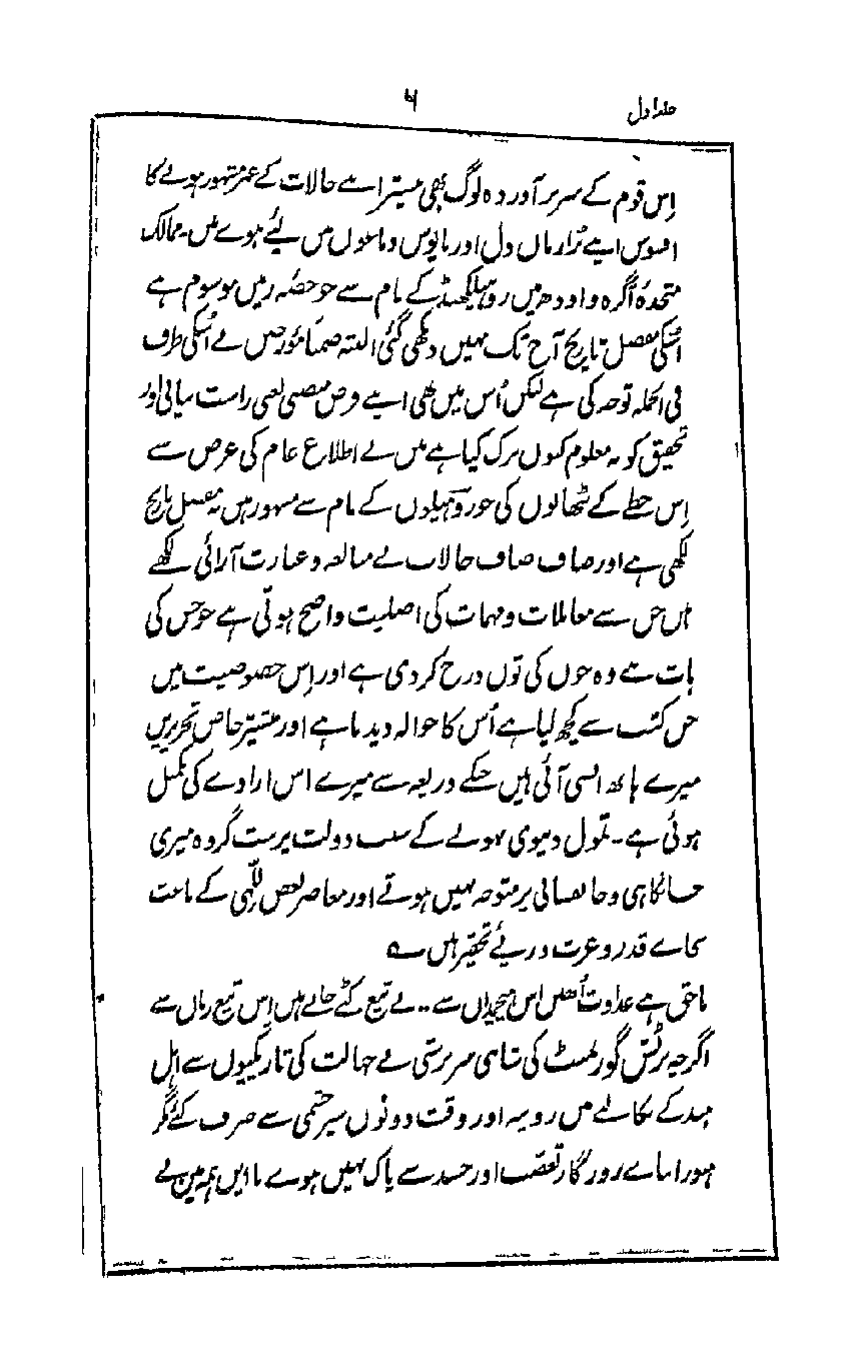 جلد اول
۵
اِس قوم کے سربرآوردہ لوگ بھی بیشتر اپنے حالات کے غیر مشہور ہونے کا
افسوس اپنے پُر ارمان دل اور مایوس دماغوں میں لیئے ہوے ہیں۔ ممالک
متحدۂ آگرہ و اودھ میں روہیلکھنڈ کے نام سے جو حصّہ زمین موسوم ہے
اُسکی مفصل تاریخ آج تک نہیں دیکھی گئی البتہ ضمناً مؤرخین نے اُسکی طرف
فی الجملہ توجہ کی ہے لیکن اُس میں بھی اپنے فرض منصبی یعنی راست بیانی اور
تحقیق کو نہ معلوم کیوں ترک کیا ہے میں نے اطلاع عام کی غرض سے
اِس خطے کے پٹھانوں کی جو روہیلوں کے نام سے مشہور ہیں یہ مفصل تاریخ
لکھی ہے اور صاف صاف حالات بے مبالغہ و عبارت آرائی لکھے
ہیں جن سے معاملات و مہمات کی اصلیت واضح ہوتی ہے جو جس کی
بات ہے وہ جوں کی توں درج کردی ہے اور اِس خصوصیت میں
جس کتاب سے کچھ لیا ہے اُس کا حوالہ دیدیا ہے اور بیشتر خاص تحریریں
میرے ہاتھ ایسی آئی ہیں جنکے ذریعہ سے میرے اس ارادے کی تکمیل
ہوئی ہے۔ تموّل دنیوی نہونے کے سبب دولت پرست گروہ میری
جانکاہی و جانفشانی پر متوجہ نہیں ہوتے اور معاصر بغض للّہی کے باعث
بجاے قدر و عزت درپئے تحقیر ہیں ؎
ناحق ہے عداوت اُنھیں اس ہیچمداں سے .. بے تیغ کٹے جاتے ہیں اِس تیغ زباں سے
اگرچہ برٹش گورنمنٹ کی شاہی سرپرستی نے جہالت کی تاریکیوں سے اہل
ہند کے نکالنے میں روپیہ اور وقت دونوں سیرچشمی سے صرف کئے مگر
ہنوز ابناے روزگار تعصّب اور حسد سے پاک نہیں ہوے با این ہمہ میں نے